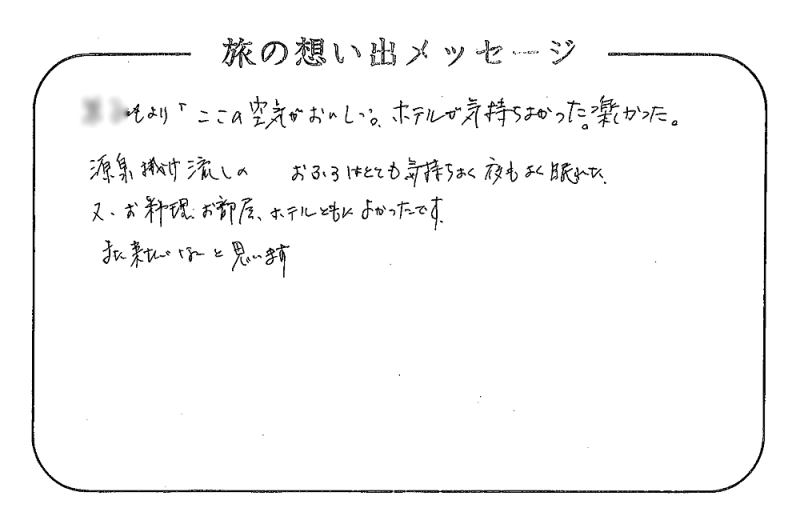 旅の想い出メッセージ
もより「ここの空気がおいしい。ホテルが気持ちよかった。楽しかった。
源泉掛け流しの おふろはとても気持ちよく夜もよく眠れた、
又、お料理、お部屋、ホテルともによかったです。
また来たいなーと思います